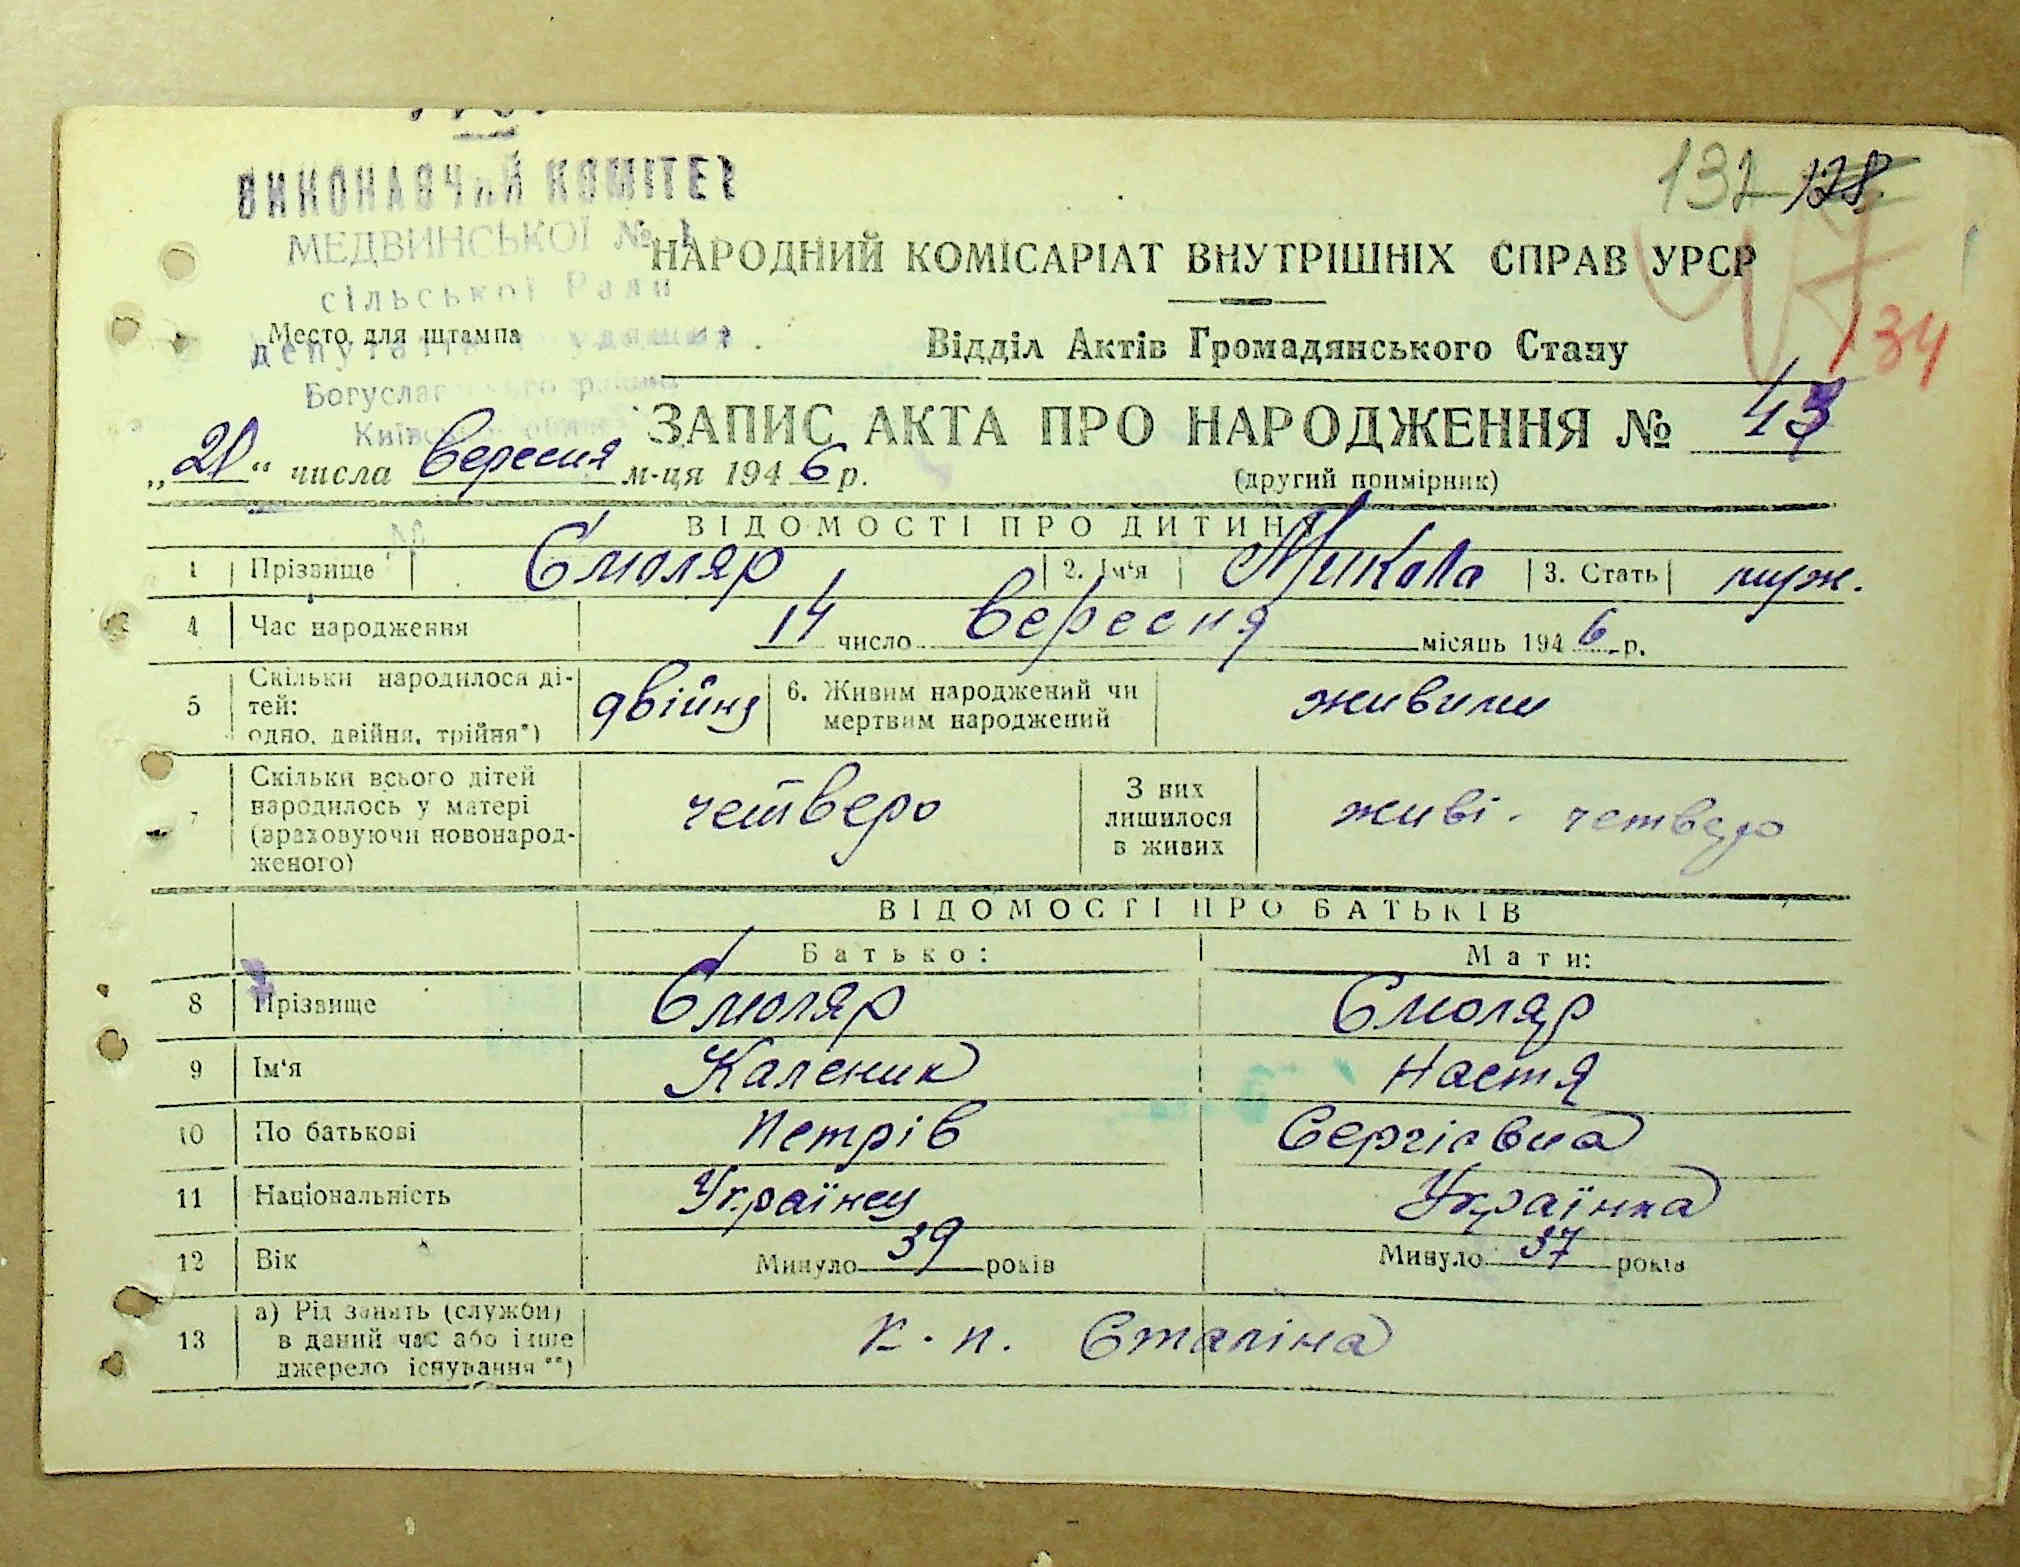 УРСР
ВИКОНАВЧИЙ КОМІТЕТ
МЕДВИНСЬКОЇ № 1
сільської Ради
депутатів трудящих
Богуславського району
Київської області
132 128
НАРОДНИЙ КОМІСАРІАТ ВНУТРІШНІХ СПРАВ УРСР
134
Место для штампа
Відділ Актів Громадянського Стану
ЗАПИС АКТА ПРО НАРОДЖЕННЯ № 43
„20“ числа вересня м-ця 1946 р.
(другий примірник)
ВІДОМОСТІ ПРО ДИТИНУ
1 Прізвище Смоляр 2. Ім'я Микола 3. Стать муж.
4 Час народження 14 число вересня місяць 1946 р.
5 Скільки народилося дітей: одно, двійня, трійня*) двійня 6. Живим народжений чи мертвим народжений живими
7 Скільки всього дітей народилось у матері (враховуючи новонародженого) четверо З них лишилося в живих живі. четверо
ВІДОМОСТІ ПРО БАТЬКІВ
Батько: Мати:
8 Прізвище Смоляр Смоляр
9 Ім'я Каленик Настя
10 По батькові Петрів Сергієвна
11 Національність Українец Українка
12 Вік Минуло 39 років Минуло 37 років
13 а) Рід занять (служби) в даний час або інше джерело існування**) к. п. Сталіна